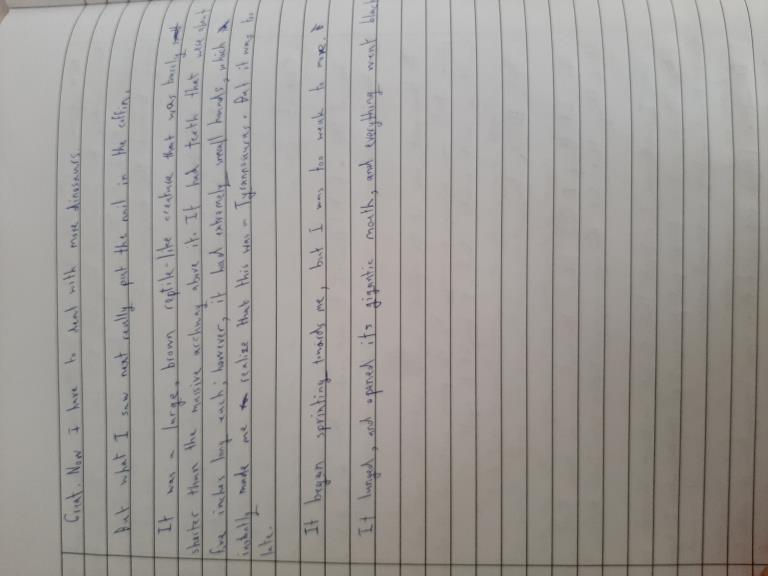 Great. Now I have to deal with more dinosaurs.
But what I saw next really put the nail in the coffin.
It was a large, brown reptile-like creature that was barely
shorter than the massive archway above it. It had teeth that were
five inches long each; however, it had extremely small hands, which
instantly made me realize that this was a Tyrannosaurus. But it was too
late.
It began sprinting towards me, but I was too weak to move.
It lunged, and opened its gigantic mouth, and everything went black